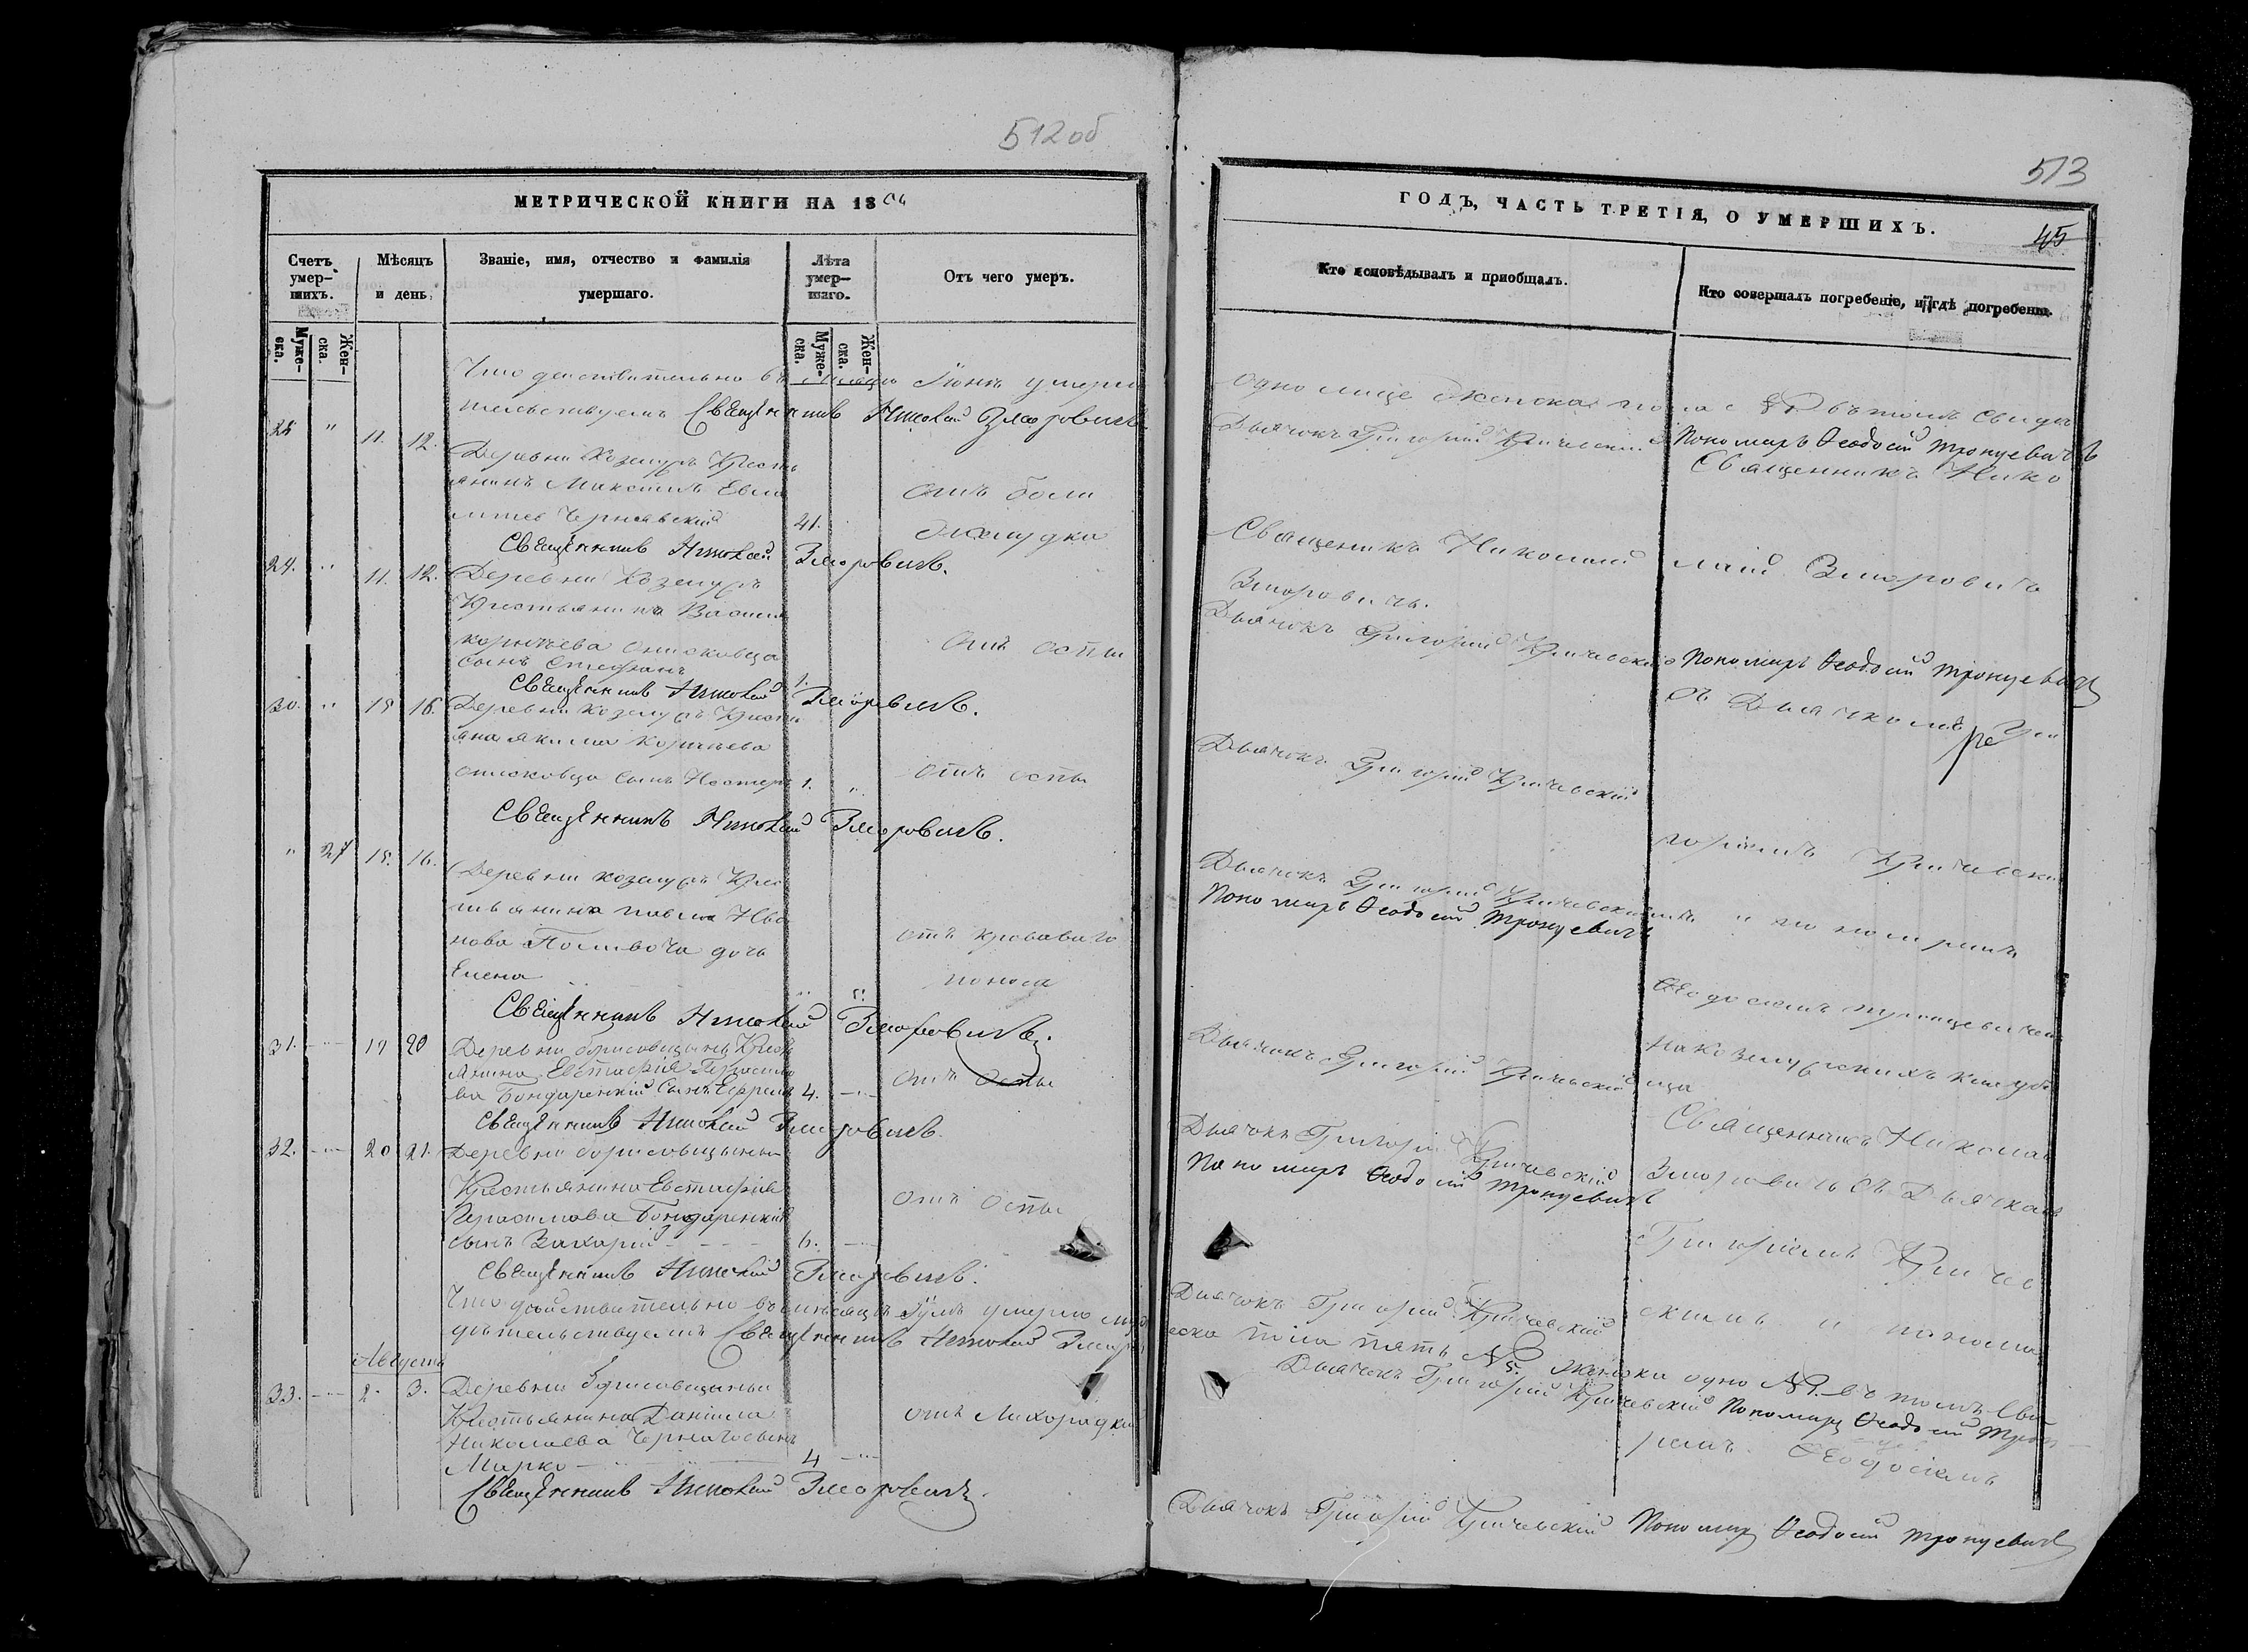 512 об
МЕТРИЧЕСКОЙ КНИГИ НА 18
Счетъ умер-шихъ.
Мѣсяцъ и день.
Званіе, имя, отчество и фамилія умершаго.
Лѣта умер-шаго.
Отъ чего умеръ.
Муже-ска.
Жен-ска.
Муже-ска.
Жен-ска.
Что действительно въ месяце Іюнѣ умерло
тельствуемъ Священникъ Николай Зморовичъ
11. 12.
Деревни Коземуръ Крестья
янинъ Максимъ
Чернявскій 41.
отъ боли
желудка
Священникъ Николай Зморовичъ.
11. 12. Деревни Коземуръ
Крестьянина
Корнѣева Онисковца
сынъ Стефанъ 1.
отъ оспы
Священникъ Николай Зморовичъ.
30. " 15 16. Деревни Коземуръ Кресть
яна Якима Корнѣева
Онисковца сынъ Нестеръ 1. "
отъ оспы
Священникъ Николай Зморовичъ.
" 15. 16.
Деревни Коземуръ Крес
тьянина Павла Ива
нова дочь
Елена " 5.
отъ кроваваго
поноса
Священникъ Николай Зморовичъ.
31. 19 20 Деревни Борисовщины Кресть
янина Евстафія Герасимо
ва Бондаренкій Сынъ Ефремъ 4.
отъ оспы
Священникъ Николай Зморовичъ.
32. 20 21. Деревни Борисовщины
Крестьянина Евстафія
Герасимова Бондаренкій
сынъ Захарій 6.
отъ оспы
Священникъ Николай Зморовичъ.
Что действительно въ месяцѣ Іюлѣ умерло муж
дѣтельствуемъ Священникъ Николай Зморо
Августъ
33. 2. 3. Деревни Борисовщины
Крестьянина Даніила
Николаева сынъ
Марко 4
отъ Лихорадки
Священникъ Николай Зморовичъ.
513
ГОДЪ, ЧАСТЬ ТРЕТІЯ, О УМЕРШИХЪ.
45
Кто исповѣдывалъ и пріобщалъ.
Кто совершалъ погребеніе, и гдѣ погребены.
одно лице женска пола въ томъ свидѣ
Дьячокъ Григорій Кричевскій Пономарь Ѳеодосій Тронцевичъ
Священникъ Нико
Священикъ Николай
лай Зморовичъ
Зморовичъ.
Дьячокъ Григорій Кричевскій Пономарь Ѳеодосій Тронцевичъ
съ Дьячкомъ Гри
Дьячокъ Григорій Кричевскій
горіемъ Кричевски
Дьячокъ Григорій Кричевскій
мъ и пономремъ
Пономарь Ѳеодосій Тронцевичъ
Ѳеодосіемъ Тронцевичемъ
на Коземурскихъ кладби
Дьячокъ Григорій Кричевскій
ща
Священникъ Николай
Дьячокъ Григорій Кричевскій
Пономарь Ѳеодосій Тронцевичъ
Зморовичъ съ Дьячкомъ
Григоріемъ Криче
скимъ и понома
Дьячокъ Григорій Кричевскій
ска пола пять № 5. женска одно въ томъ сви
Дьячокъ Григорій Кричевскій Пономарь Ѳеодосій Трон
ремъ Ѳеодосіемъ
Дьячокъ Григорій Кричевскій Пономарь Ѳеодосій Тронцевичъ